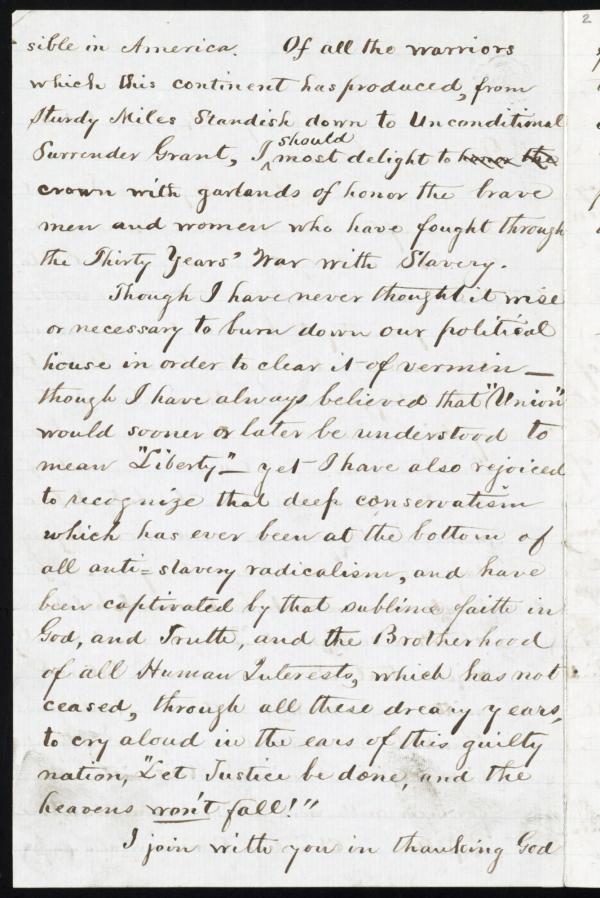 2
sible in America. Of all the warriors
which this continent has produced, from
sturdy Miles Standish down to Unconditional
Surrender Grant, I should most delight to honor the
crown with garlands of honor the brave
men and women who have fought through
the Thirty Years' War with Slavery.
Though I have never thought it wise
or necessary to burn down our political
house in order to clear it of vermin —
though I have always believed that "Union"
would sooner or later be understood to
mean "Liberty" — yet I have also rejoiced
to recognize that deep conservatism
which has ever been at the bottom of
all anti=slavery radicalism, and have
been captivated by that sublime faith in
God, and Truth, and the Brotherhood
of all Human Interests, which has not
ceased, through all these dreary years,
to cry aloud in the ears of this guilty
nation, "Let Justice be done, and the
heavens won't fall!"
I join with you in thanking God